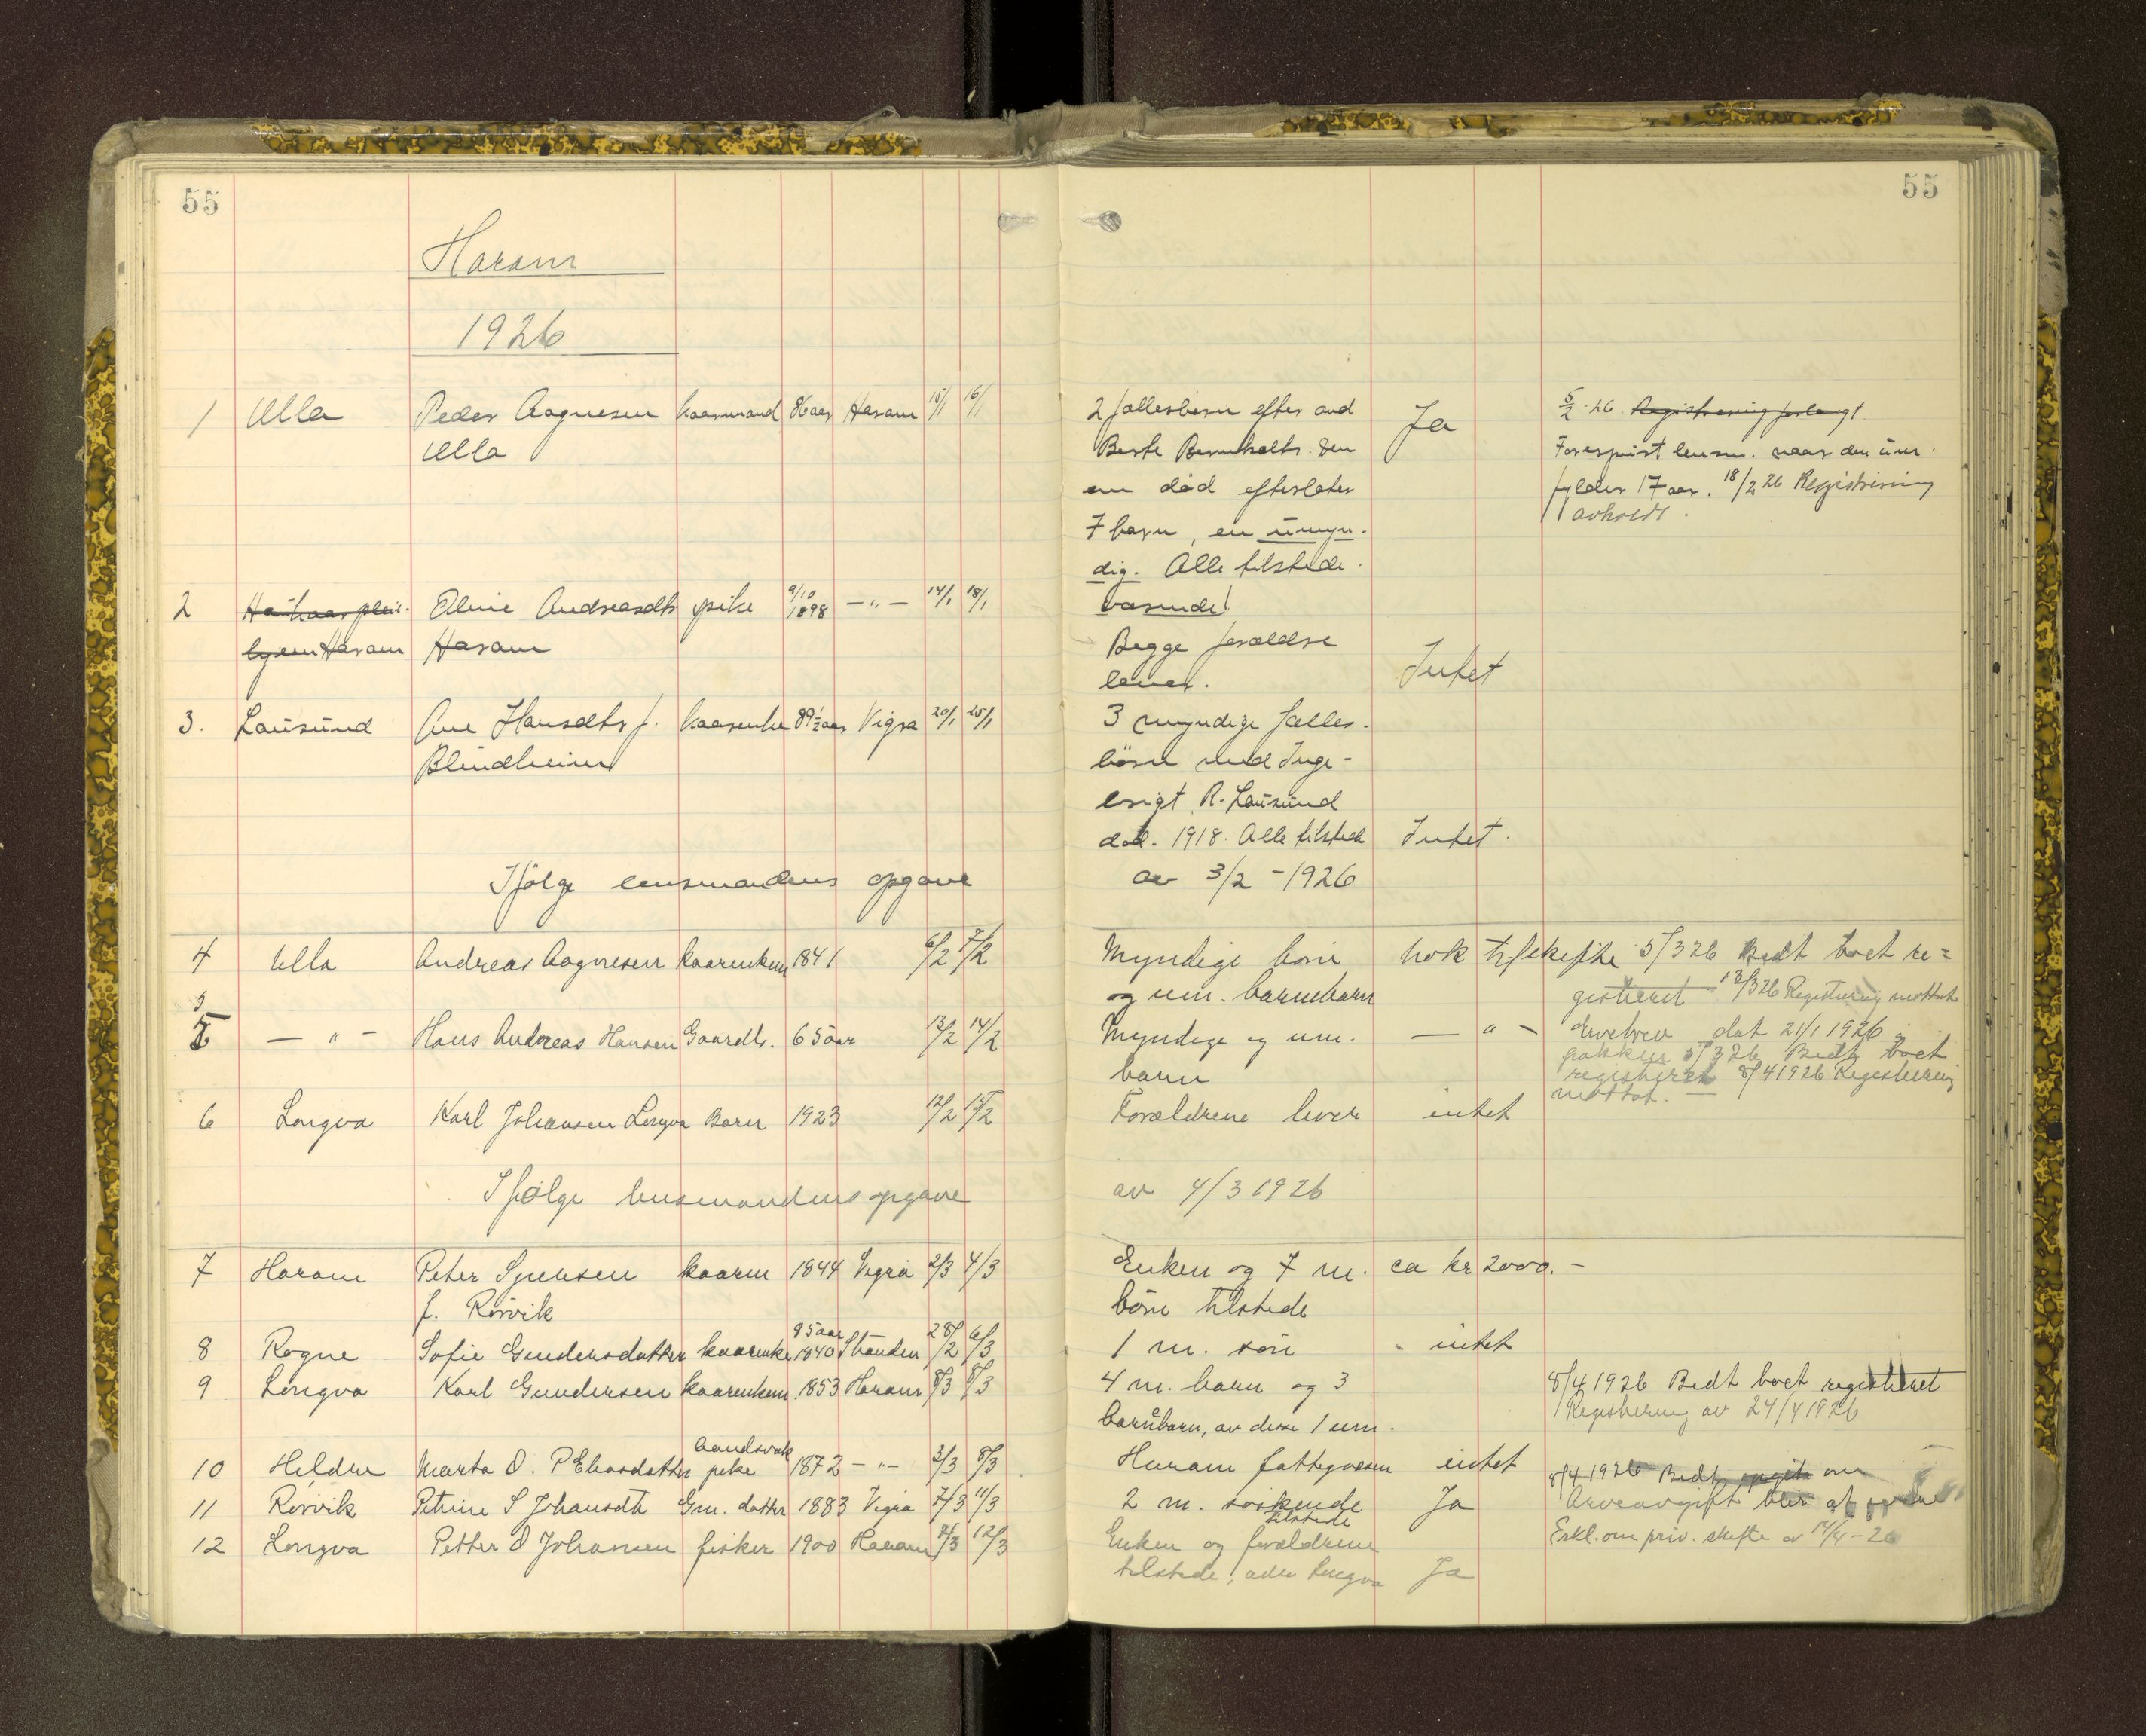 55
Haram
1926
1 Ulla Peder Aagnesen kaarmand 86 aar Haram 15/1 16/1
Ulla
2 Haram plei-
hjem Haram Oline Andreasdtr pike 9/10 1898 — " — 14/1 18/1
Haram
3. Lausund Ane Hansdtr f. kaarenke 89½ aar Vigra 20/1 25/1
Blindheim
Ifølge lensmandens opgave
4 Ulla Andreas Aagnesen kaarenkem 1841 6/2 7/2
5 — " — Hans Andreas Hansen Gaardbr. 65 aar 13/2 14/2
6 Longva Karl Johansen Longva Barn 1923 12/2 15/2
Ifølge lensmandens opgave
7 Haram Peter Syversen kaarm 1844 Vigra 2/3 4/3
f. Rørvik
8 Rogne Sofie Gundersdatter kaarenke 85 aar 1840 Stranden 28/2 6/3
9 Longva Karl Gundersen kaarenkem. 1853 Haram 8/3 8/3
10 Hildre Marta O. P Eliasdatter aandsvak pike 1872 — " — 3/3 8/3
11 Rørvik Petrine S Johansdtr Gm. datter 1883 Vigra 7/3 11/3
12 Longva Petter O Johansen fisker 1900 Haram 12/3
55
2 fællesbørn efter avd
Berte Berntsdtr. Den
ene død efterlater
7 barn, en umyn-
dig. Alle tilstede-
værende!
Ja
5/2-26. Registrering forlangt
Forespurt lensm. naar den um.
fylder 17 aar. 18/2 26 Registrering
avholdt.
Begge forældre
lever. Intet
3 myndige fælles-
børn med Inge-
brigt R. Lausund
død. 1918. Alle tilstede Intet.
av 3/2 - 1926
Myndige børn nok til skifte 5/3 26 Bedt boet re=
og um. barnebarn gistreret 13/3 26 Registrering mottat
Myndige og um. — " — Arvebrev dat 21/1 1926 i
barn pakken 5/3 26 Bedt boet
registreret 8/4 1926 Registrering
mottat. —
Forældrene lever intet
av 4/3 1926
Enken og 7 m. ca kr 2000.-
børn tilstede
1 m. søn intet
4 m. barn og 3 8/4 1926 Bedt boet registreret
barnebarn, av disse 1 um. Registrering av 24/4 1926
Haram fattigvæsen intet
8/4 1926 Bedt opgit om
2 m. søskende tilstede Ja Arveavgift blir at svare
Enken og forældrene Erkl. om priv. skifte av 14/4-26
tilstede, adr Longva Ja